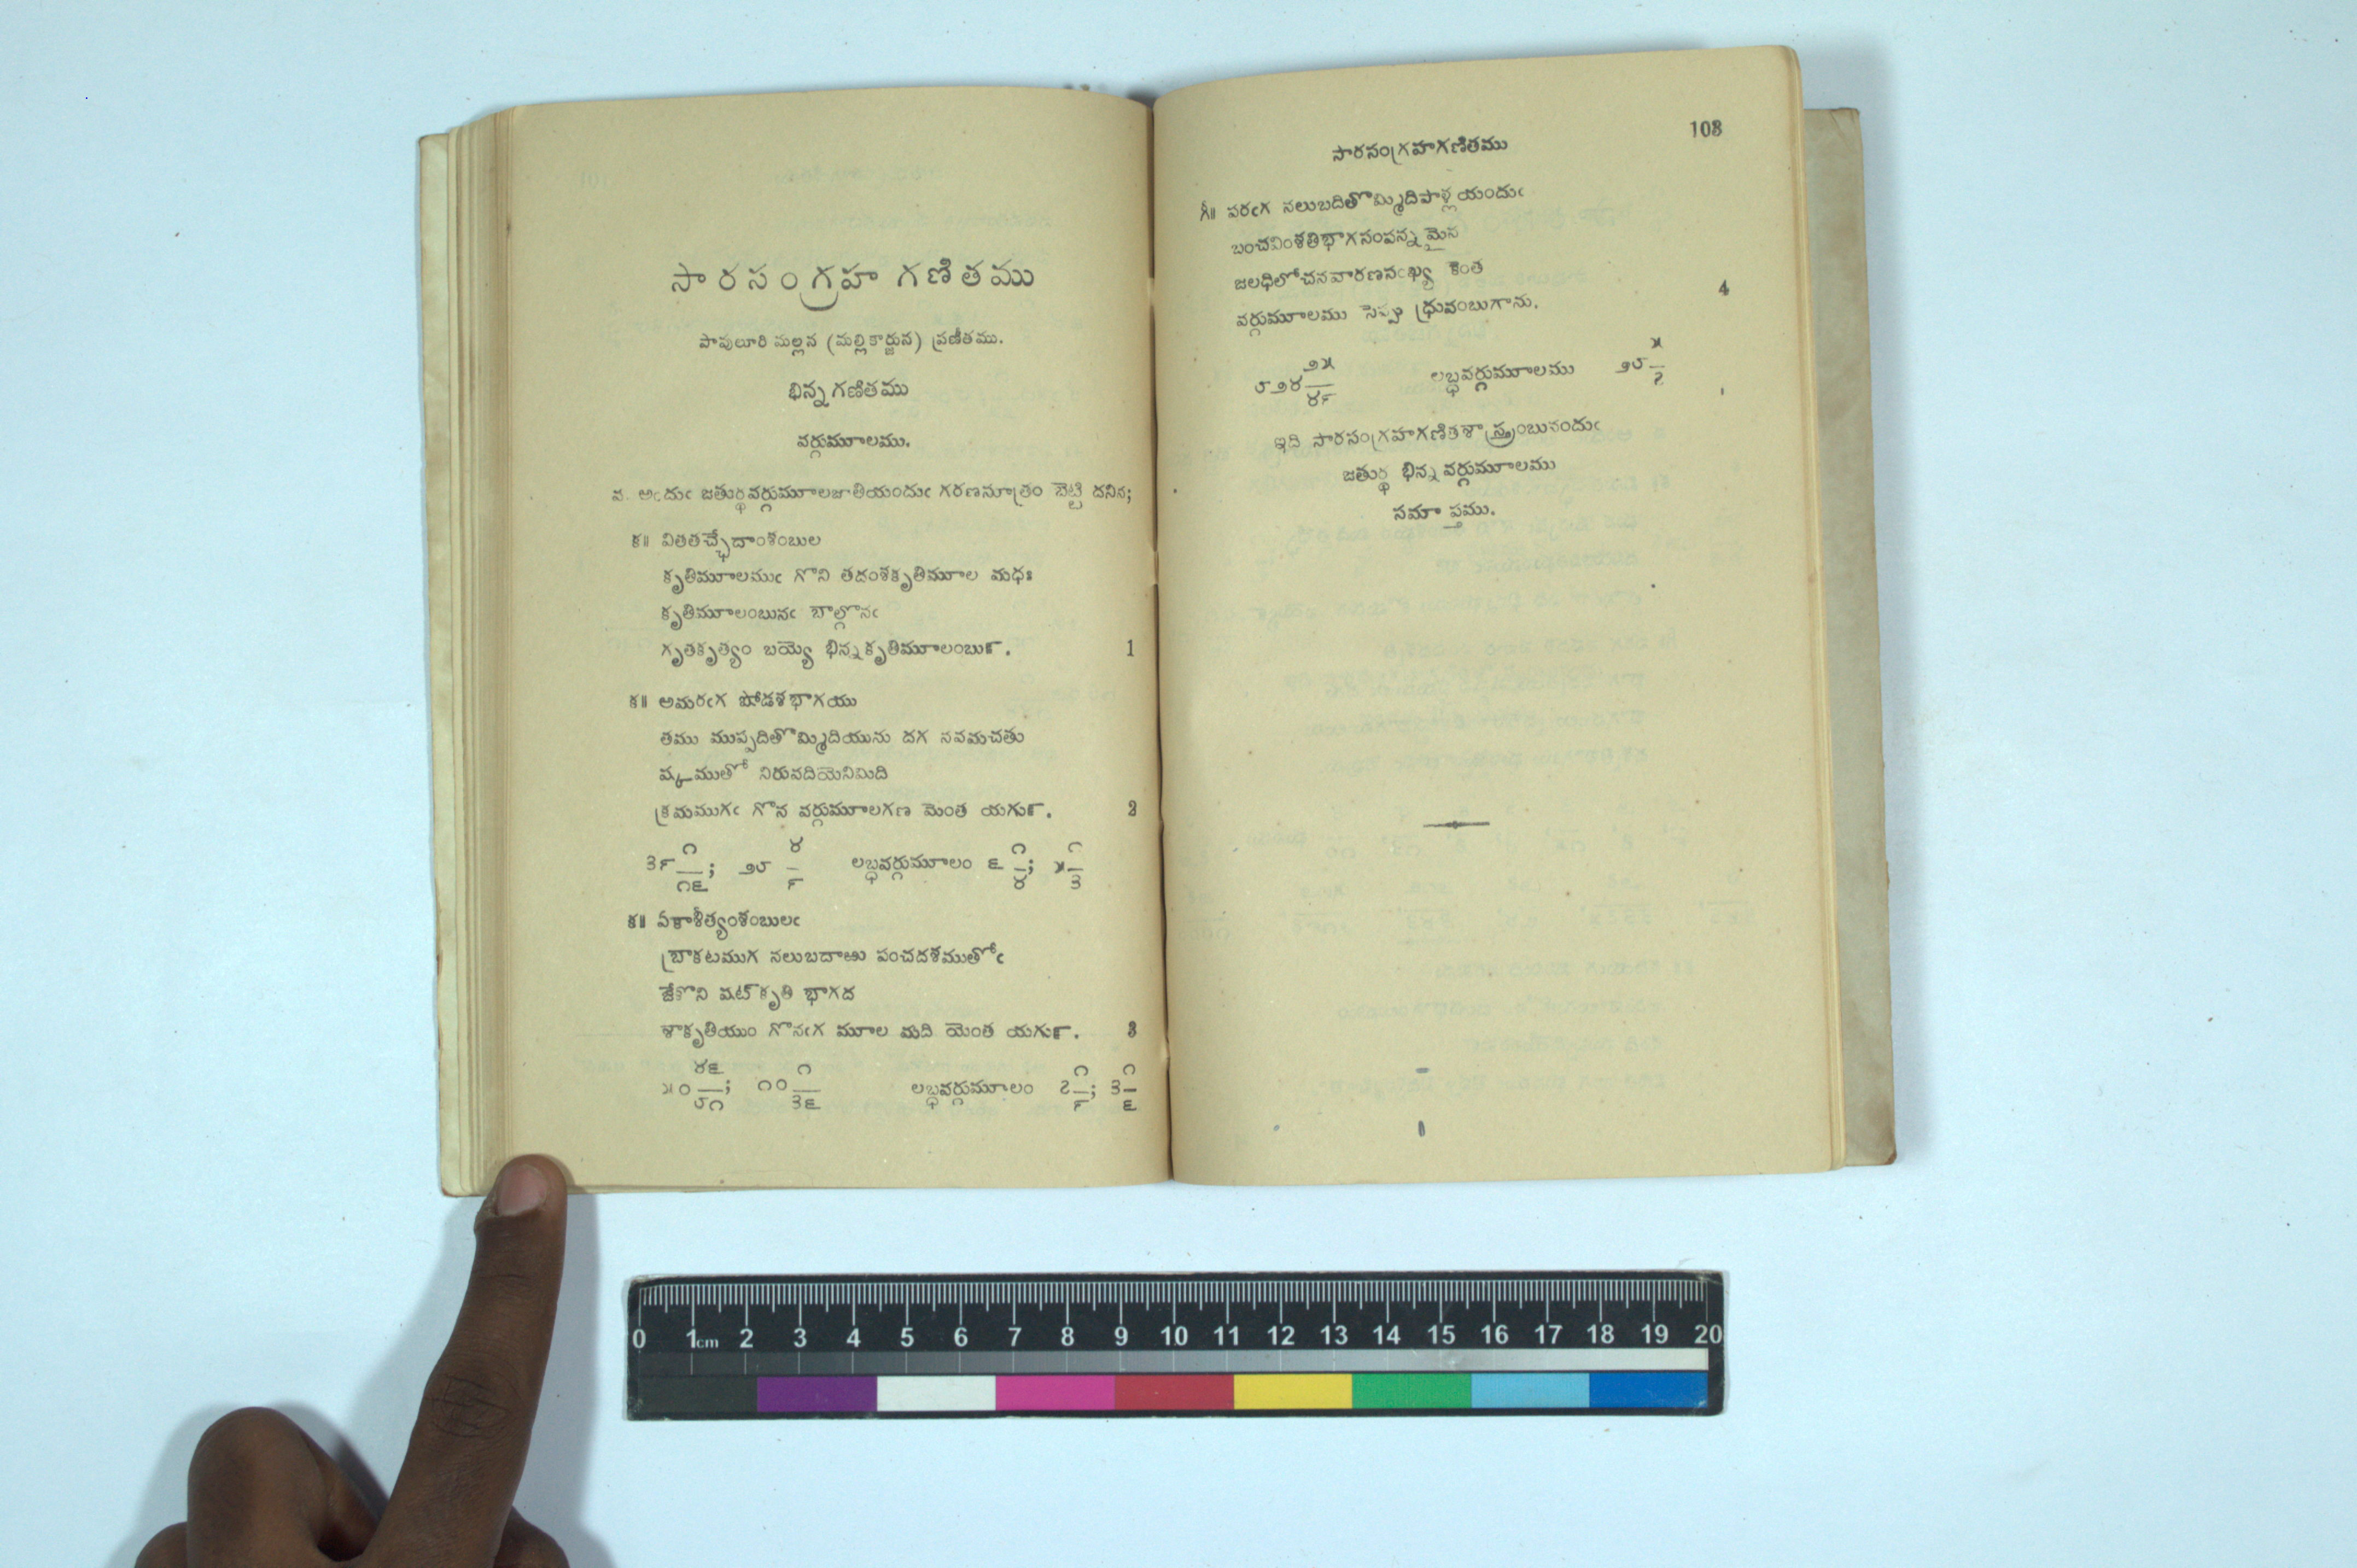 సారసంగ్రహ గణితము
పావులూరి మల్లన (మల్లికార్జున) ప్రణీతము.
భిన్నగణితము
వర్గమూలము.
వ. అందుఁ జతుర్థవర్గమూలజాతియందుఁ గరణసూత్రం బెట్టి దనిన;
క॥ వితతచ్ఛేదాంశంబుల
కృతిమూలముఁ గొని తదంశకృతిమూల మధః
కృతిమూలంబునఁ బాల్గొనఁ
గృతకృత్యం బయ్యె భిన్నకృతిమూలంబు౯. 1
క॥ అమరఁగ షోడశభాగయు
తము ముప్పదితొమ్మిదియును దగ నవమచతు
ష్కముతో నిరువదియెనిమిది
క్రమముగఁ గొన వర్గమూలగణ మెంత యగు౯. 2
౩౯ ౧/౧౬; ౨౮ ౪/౯ లబ్ధవర్గమూలం ౬ ౧/౪; ౫ ౧/౩
క॥ ఏకాశీత్యంశంబులఁ
బ్రాకటముగ నలుబదాఱు పంచదశముతోఁ
జేకొని షట్కృతి భాగద
శాకృతియుం గొనఁగ మూల మది యెంత యగు౯. 3
౫౦ ౪౬/౮౧; ౧౦ ౧/౩౬ లబ్ధవర్గమూలం ౭ ౧/౯; ౩ ౧/౬
సారసంగ్రహగణితము 103
గీ॥ పరఁగ నలుబదితొమ్మిదిపాళ్ల యందుఁ
బంచవింశతిభాగసంపన్న మైన
జలధిలోచనవారణసంఖ్య కెంత
వర్గమూలము సెప్పు ధ్రువంబుగాను. 4
౮౨౪ ౨౫/౪౯ లబ్ధవర్గమూలము ౨౮ ౫/౭
ఇది సారసంగ్రహగణితశాస్త్రంబునందుఁ
జతుర్థ భిన్న వర్గమూలము
సమాప్తము.
0 1cm 2 3 4 5 6 7 8 9 10 11 12 13 14 15 16 17 18 19 20